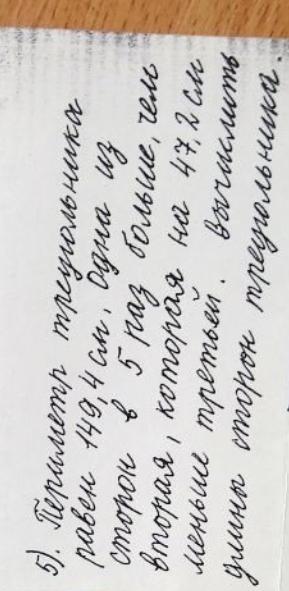 5). Периметр треугольника
равен 149,4 см. Одна из
сторон в 5 раз больше, чем
вторая, которая на 47,2 см
меньше третьей. Вычислить
длины сторон треугольника.